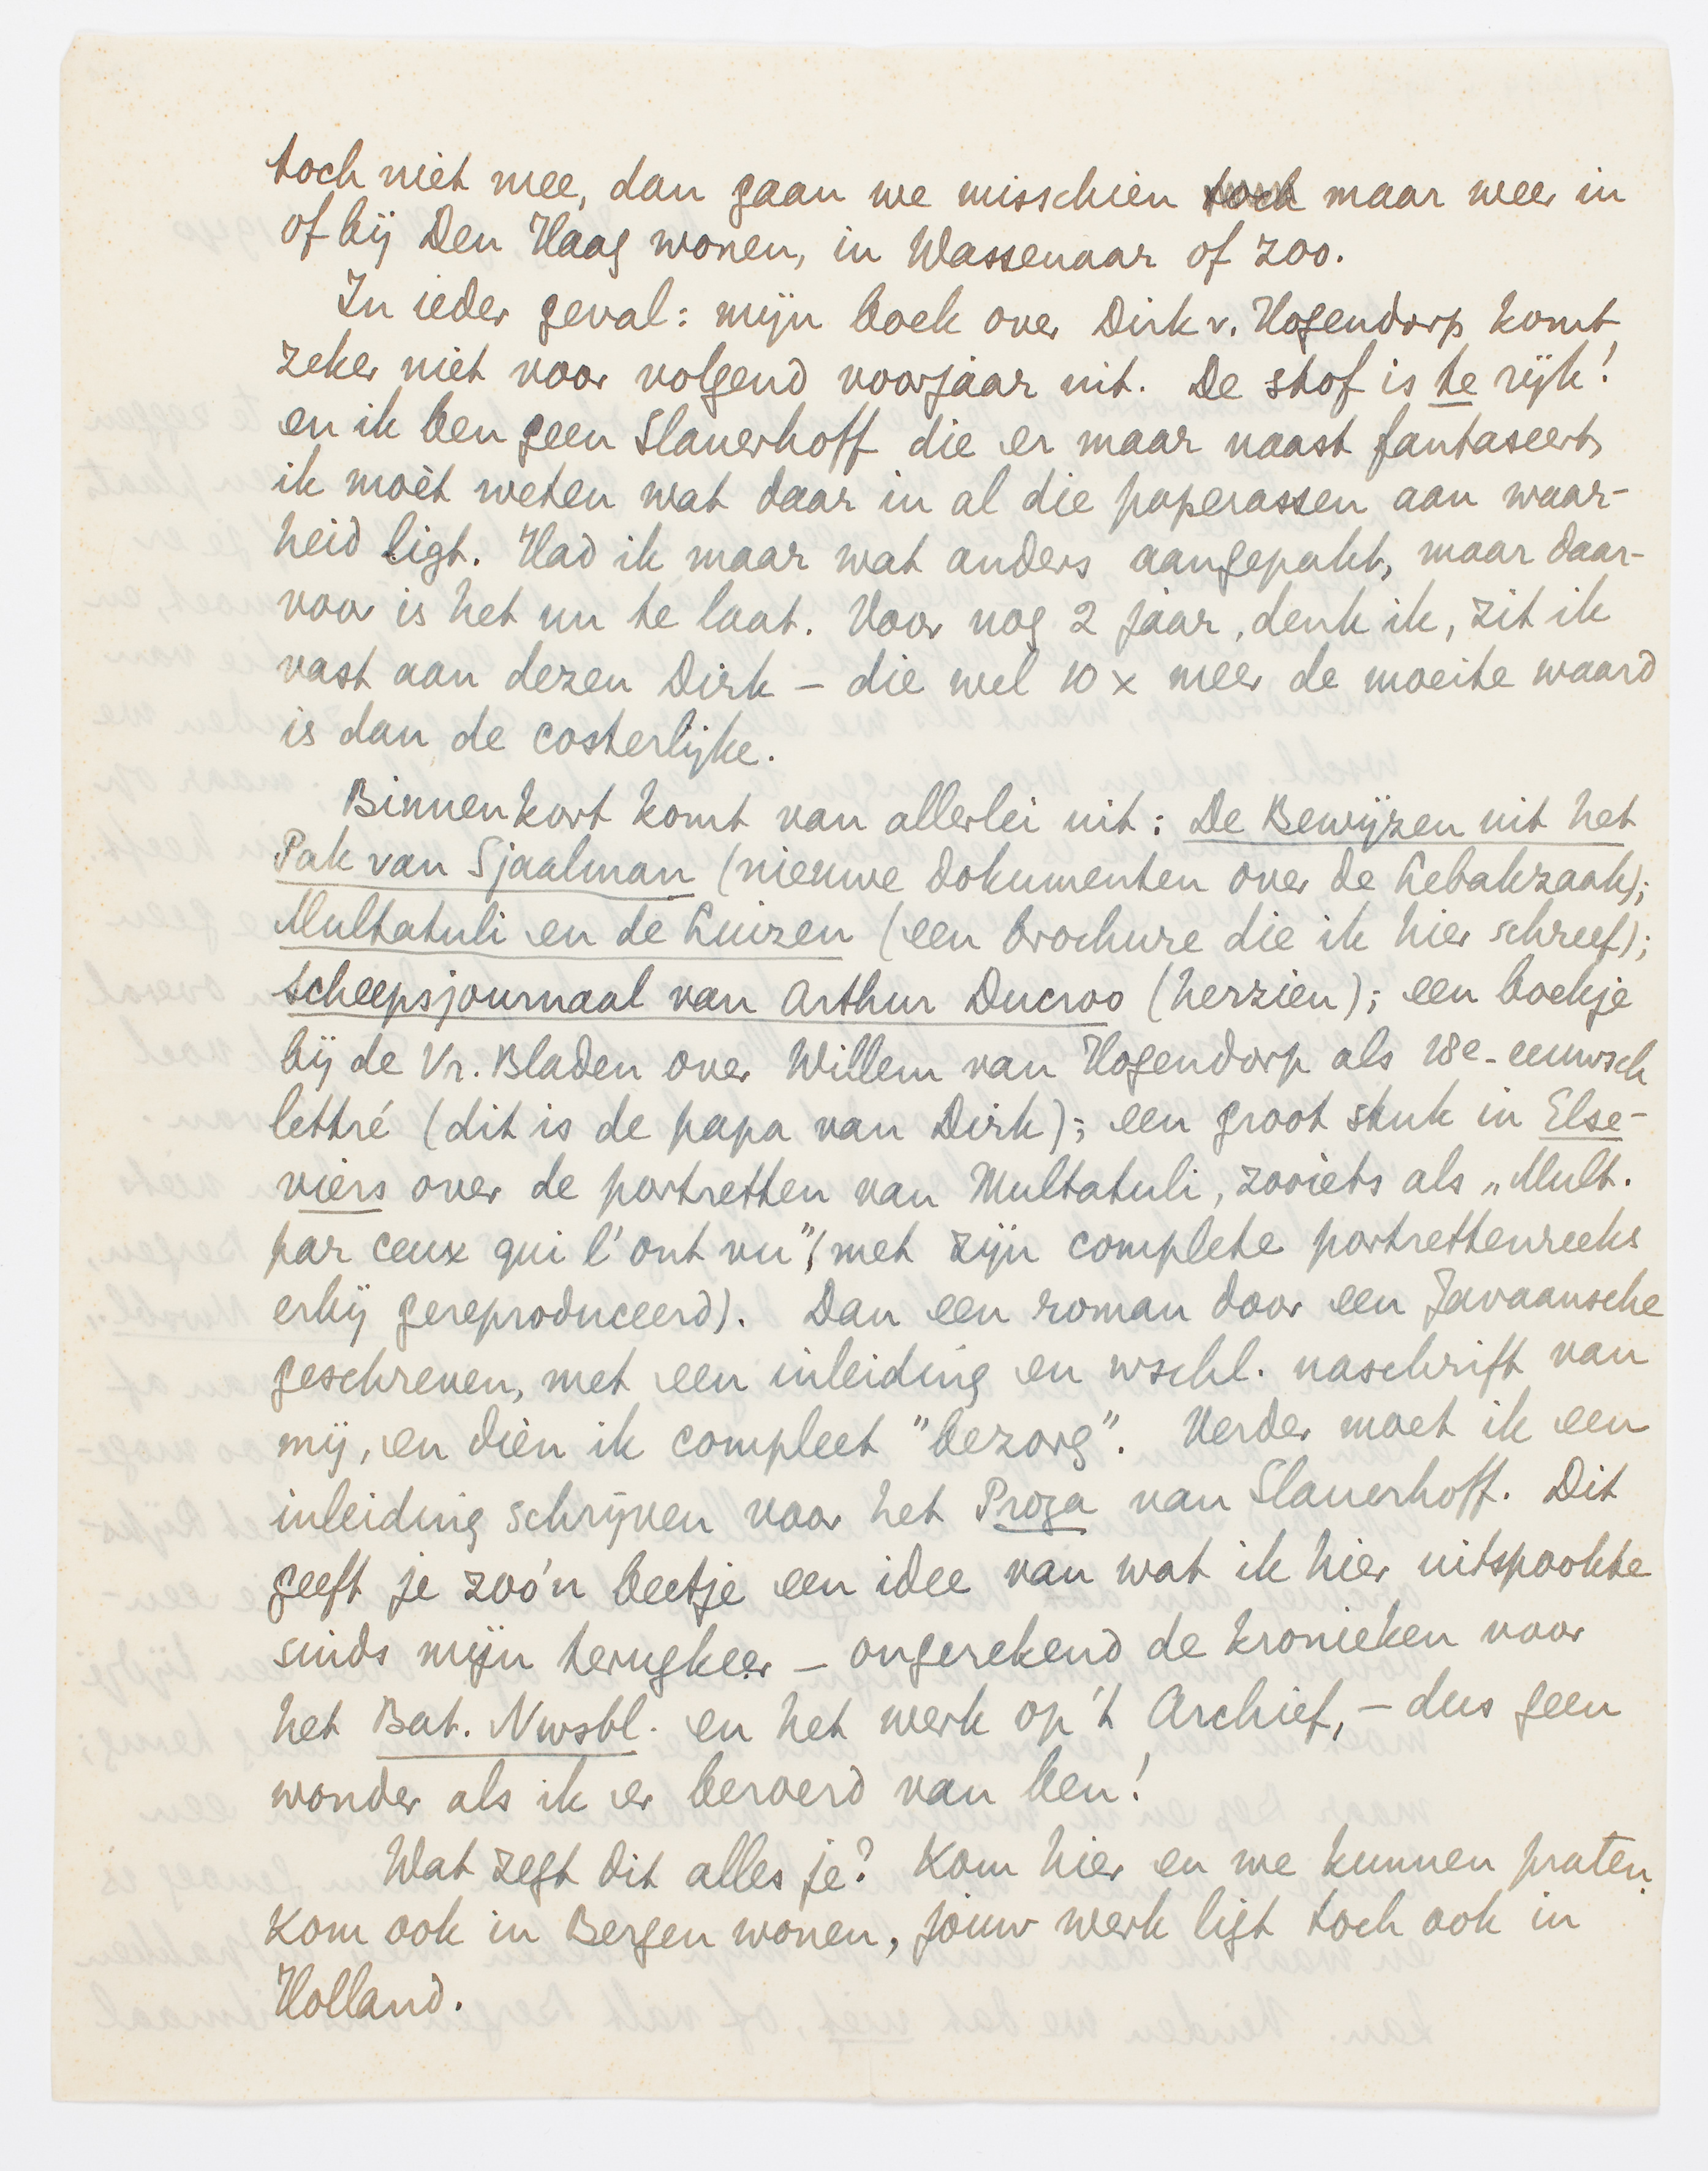 toch niet mee, dan gaan we misschien toch maar weer in
of bij Den Haag wonen, in Wassenaar of zoo.
In ieder geval: mijn boek over Dirk v. Hogendorp komt
zeker niet voor volgend voorjaar uit. De stof is te rijk!
en ik ben geen Slauerhoff die er maar naast fantaseert,
ik moèt weten wat daar in al die paperassen aan waar-
heid ligt. Had ik maar wat anders aangepakt, maar daar-
voor is het nu te laat. Voor nog 2 jaar, denk ik, zit ik
vast aan dezen Dirk – die wel 10 x meer de moeite waard
is dan de costerlijke.
Binnenkort komt van allerlei uit: De Bewijzen uit het
Pak van Sjaalman (nieuwe dokumenten over de Lebakzaak);
Multatuli en de Luizen (een brochure die ik hier schreef);
Scheepsjournaal van Arthur Ducroo (herzien); een boekje
bij de Vr. Bladen over Willem van Hogendorp als 18e-eeuwsch
lettré (dit is de papa van Dirk); een groot stuk in Else-
viers over de portretten van Multatuli, zooiets als „Mult.
par ceux qui l'ont vu" (met zijn complete portrettenreeks
erbij gereproduceerd). Dan een roman door een Javaansche
geschreven, met een inleiding en wschl. naschrift van
mij, en dièn ik compleet "bezorg". Verder moet ik een
inleiding schrijven voor het Proza van Slauerhoff. Dit
geeft je zoo'n beetje een idee van wat ik hier uitspookte
sinds mijn terugkeer – ongerekend de kronieken voor
het Bat. Nwsbl. en het werk op 't Archief, – dus geen
wonder als ik er beroerd van ben!
Wat zegt dit alles je? Kom hier en we kunnen praten.
Kom ook in Bergen wonen, jouw werk ligt toch ook in
Holland.